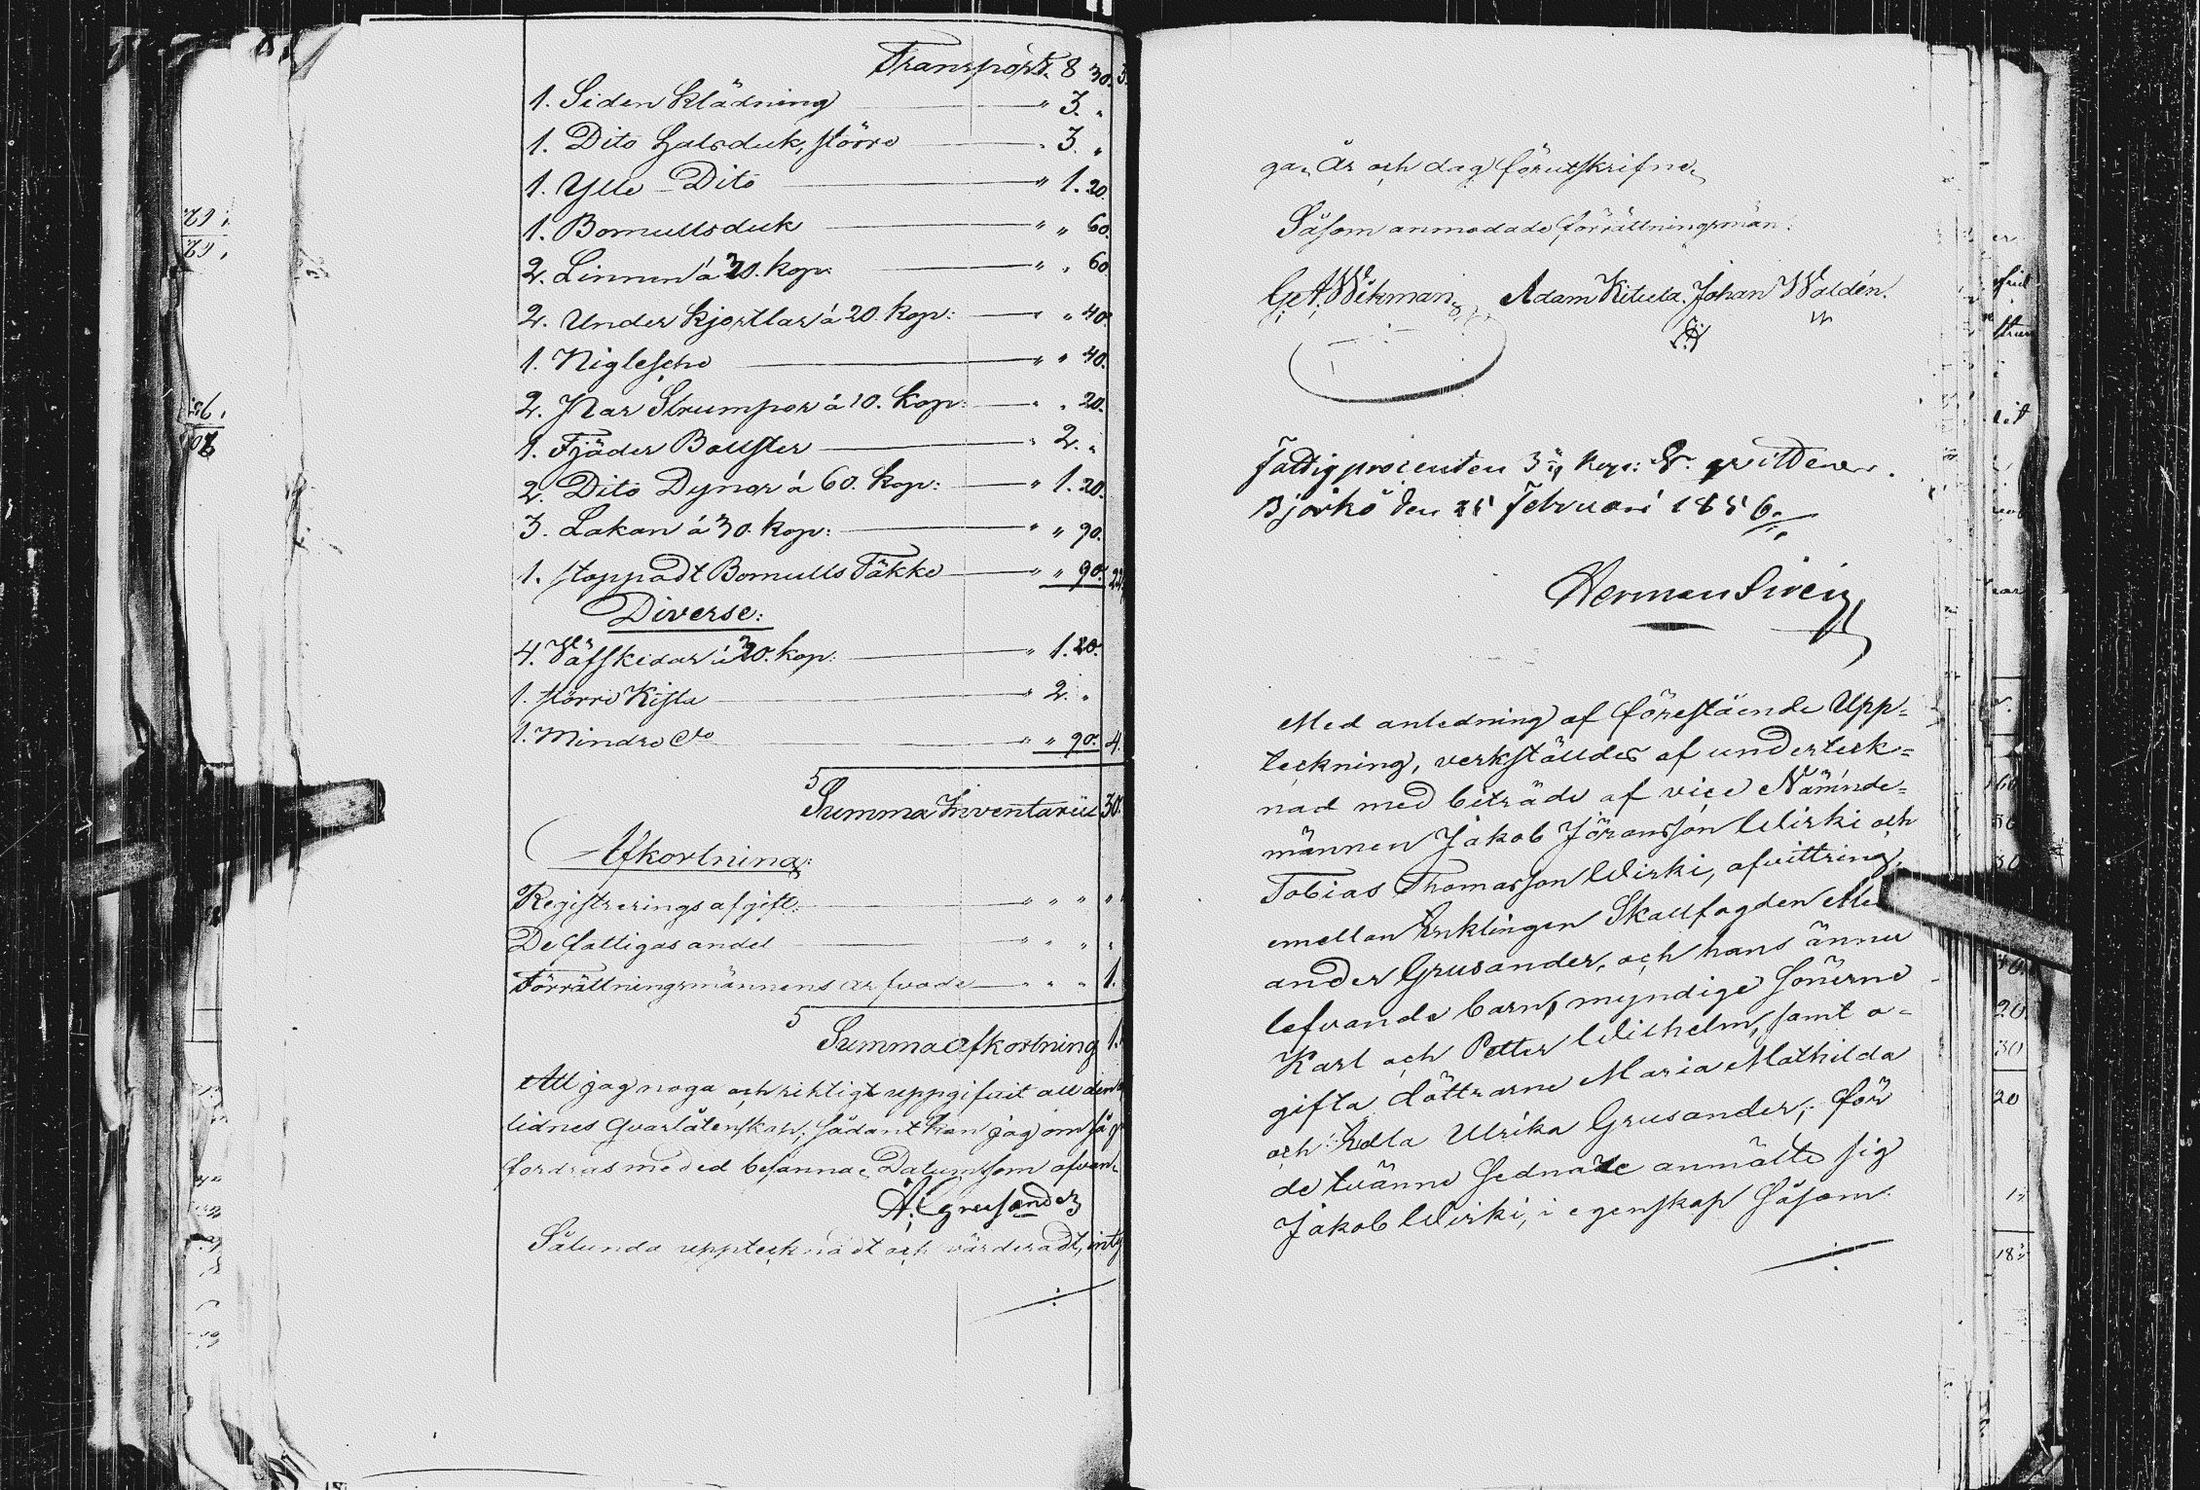 Transport. 8 30.
1. Siden Klädning " 3. "
1. Dito Halsduk, större " 3. "
1. Ylle Dito " 1. 20.
1. Bomullsduk " " 60.
2. Linnen á 30. kop: " " 60.
2. Under kjortlar á 20. Kop: " " 40.
1. Niglesche " " 40.
2. Par Strumpor á 10. Kop: " " 20.
1. Fjäder Bolster " 2. "
2. Dito Dynor á 60. Kop: " 1. 20.
3. Lakan á 30. kop: " " 90.
1. stoppadt Bomulls Täkke " " 90.
Diverse:
4. Väfskedar á 30. kop: " 1. 20.
1. större Kista " 2. "
1. Mindre d:o " " 90. 4.
Summa Inventarii 30.
Afkortning:
Registrerings afgift: " " " "
De fattigas andel " " " "
Förrättningsmännens arfvode " " " 1.
Summa Afkortning 1.
Att jag noga och riktigt uppgifvit all den
lidnes qvarlåtenskap, sådant kan jag om så
fordras med ed besanna. Datum som ofvan.
A: Grusander
Sålunda upptecknadt och värderadt, inty
ga, År och dag förutskrifne.
Såsom anmodade förrättningsmän:
G. A. Wikman, Adam Kitula. Johan Waldén.
Fattigprocenten 3 kop: S. qvitteras.
Björkö den 25 Februari 1856.
Herman Sirén
Med anledning af förestående Upp=
teckning, verkställdes af underteck=
nad med biträde af vice Nämnde=
männen Jakob Jöransson Wirki och
Tobias Thomasson Wirki, afvittring
emellan Enklingen Skallfogden Al
ander Grusander, och hans ännu
lefvande barn, myndige sönerne
Karl och Petter Wilhelm, samt o=
gifta döttrarne Maria Mathilda
och Edla Ulrika Grusander, för
de tvänne sednare anmälte sig
Jakob Wirki, i egenskap såsom